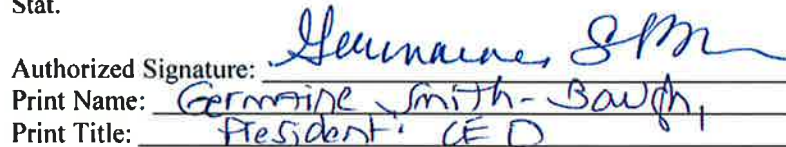 Stat.
Authorized Signature: Germaine S
Print Name: Germaine Smith-Baugh,
Print Title: President. CEO